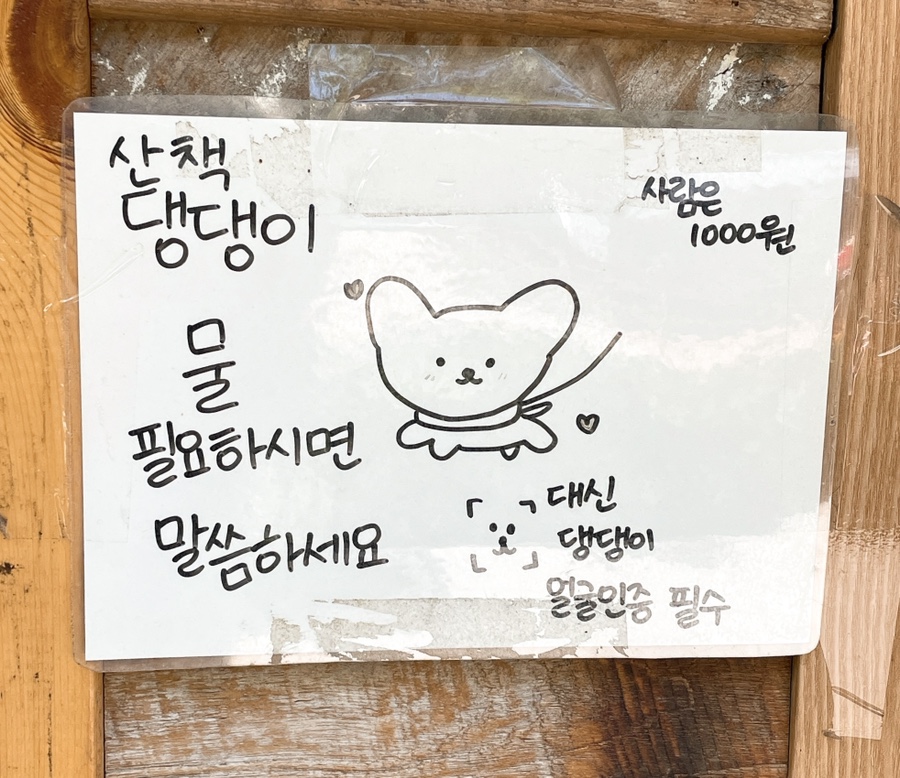 산책
댕댕이
사람은
1000원
물
필요하시면
말씀하세요
대신
댕댕이
얼굴인증 필수